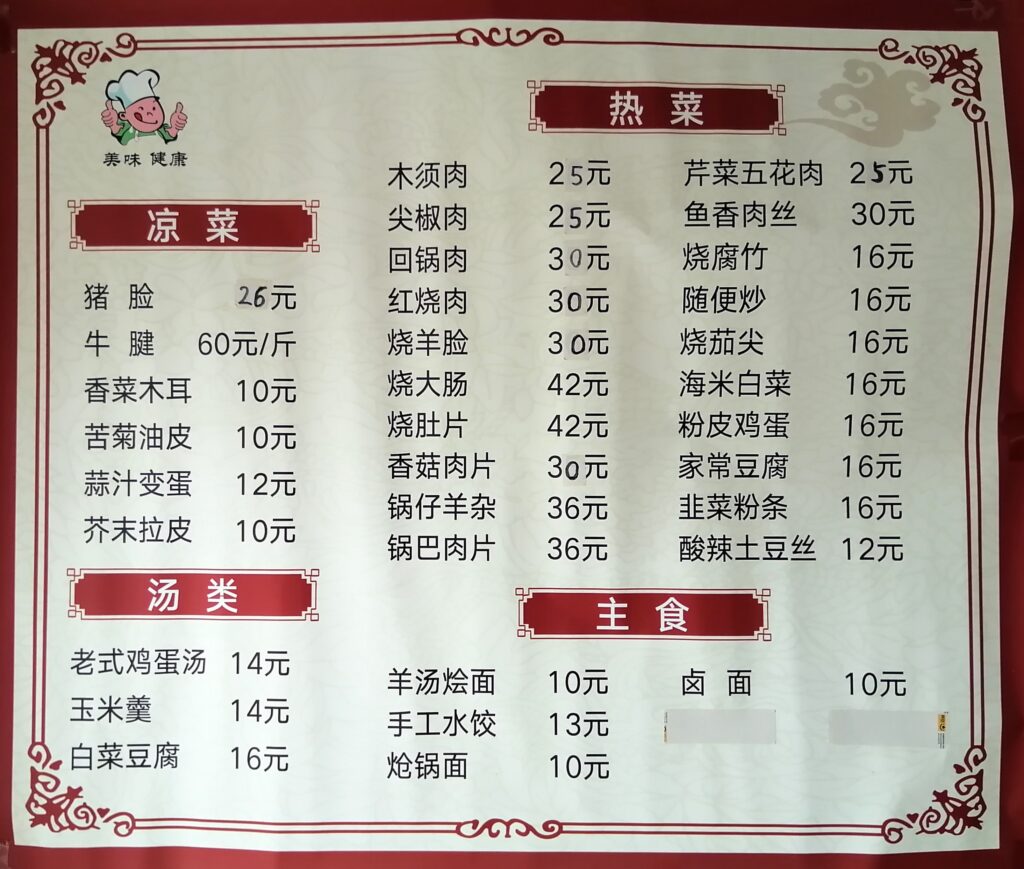 美味 健康
凉菜
猪脸 26元
牛腱 60元/斤
香菜木耳 10元
苦菊油皮 10元
蒜汁变蛋 12元
芥末拉皮 10元
汤类
老式鸡蛋汤 14元
玉米羹 14元
白菜豆腐 16元
热菜
木须肉 25元
尖椒肉 25元
回锅肉 30元
红烧肉 30元
烧羊脸 30元
烧大肠 42元
烧肚片 42元
香菇肉片 30元
锅仔羊杂 36元
锅巴肉片 36元
芹菜五花肉 25元
鱼香肉丝 30元
烧腐竹 16元
随便炒 16元
烧茄尖 16元
海米白菜 16元
粉皮鸡蛋 16元
家常豆腐 16元
韭菜粉条 16元
酸辣土豆丝 12元
主食
羊汤烩面 10元
手工水饺 13元
炝锅面 10元
卤面 10元